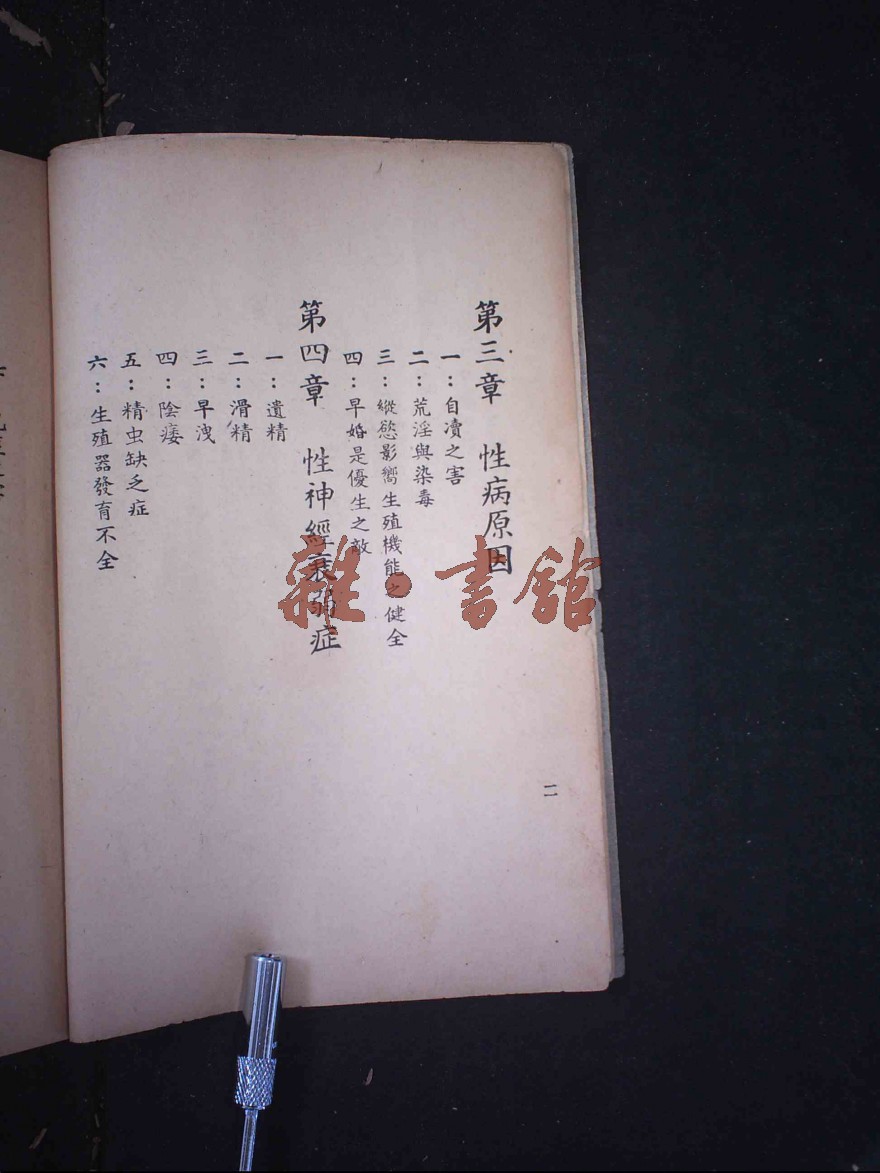 第三章 性病原因
一：自凟之害
二：荒淫與染毒
三：縱慾影嚮生殖機能之健全
四：早婚是優生之敵
第四章 性神經衰弱症
一：遺精
二：滑精
三：早洩
四：陰痿
五：精虫缺乏症
六：生殖器發育不全
二
雜·書館